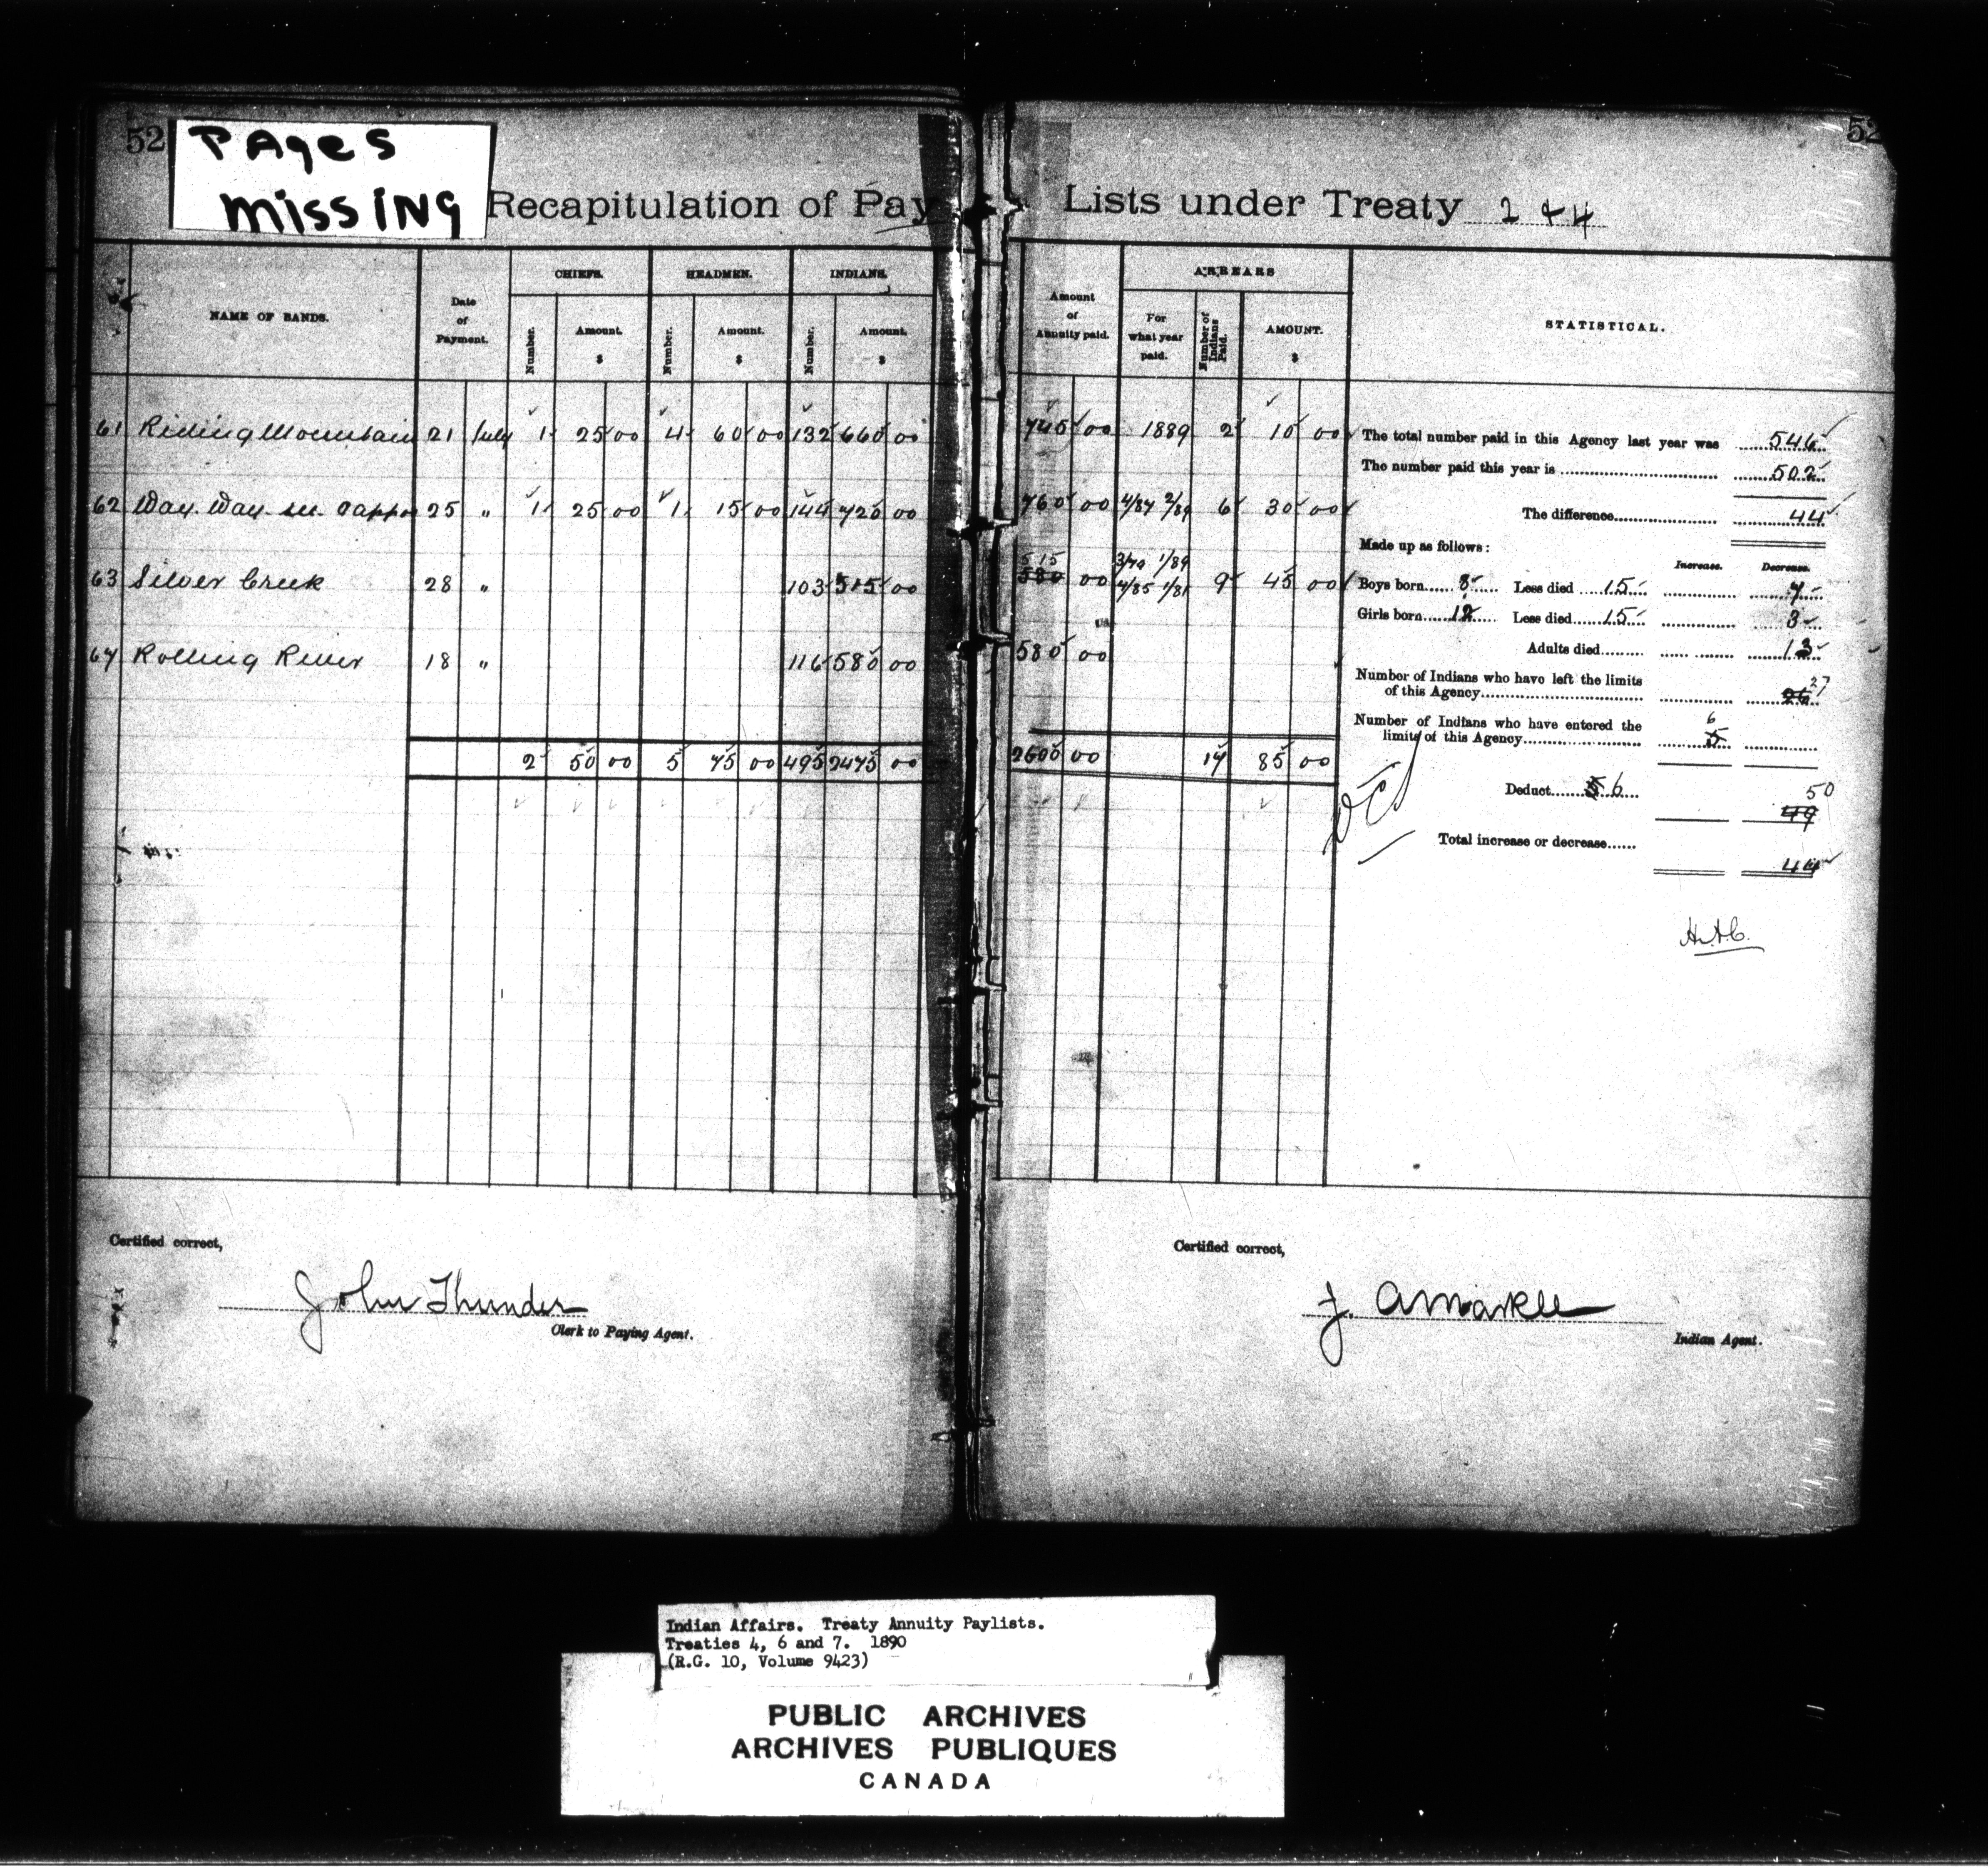 52
PAges
missING
52
Recapitulation of Pay Lists under Treaty 2 & 4
NAME OF BANDS.
Date of Payment.
CHIEFS.
Number.
Amount.
$
HEADMEN.
Number.
Amount.
$
INDIANS.
Number.
Amount.
$
Amount of Annuity paid.
ARREARS
For what year paid.
Number of Indians Paid.
AMOUNT.
$
STATISTICAL.
61 Riding Mountain 21 July 1 25 00 4 60 00 132 660 00 745 00 1889 2 10 00
62 Way. Way. see. Cappo 25 " 1 25 00 1 15 00 144 720 00 760 00 4/87 2/89 6 30 00
63 Silver Creek 28 " 103 515 00 515 580 00 1/89 4/85 1/81 9 45 00
64 Rolling River 18 " 116 580 00 580 00
2 50 00 5 75 00 495 2475 00 2600 00 17 85 00
The total number paid in this Agency last year was 546
The number paid this year is 502
The difference 44
Made up as follows:
Increase. Decrease.
Boys born 8 Less died 15 7
Girls born 12 Less died 15 3
Adults died 13
Number of Indians who have left the limits
of this Agency 26 27
Number of Indians who have entered the
limits of this Agency 5 6
Deduct 5 6 50
49
Total increase or decrease
44
Certified correct,
John Thunder
Clerk to Paying Agent.
Certified correct,
J. A Markle
Indian Agent.
Indian Affairs. Treaty Annuity Paylists.
Treaties 4, 6 and 7. 1890
(R.G. 10, Volume 9423)
PUBLIC ARCHIVES
ARCHIVES PUBLIQUES
CANADA